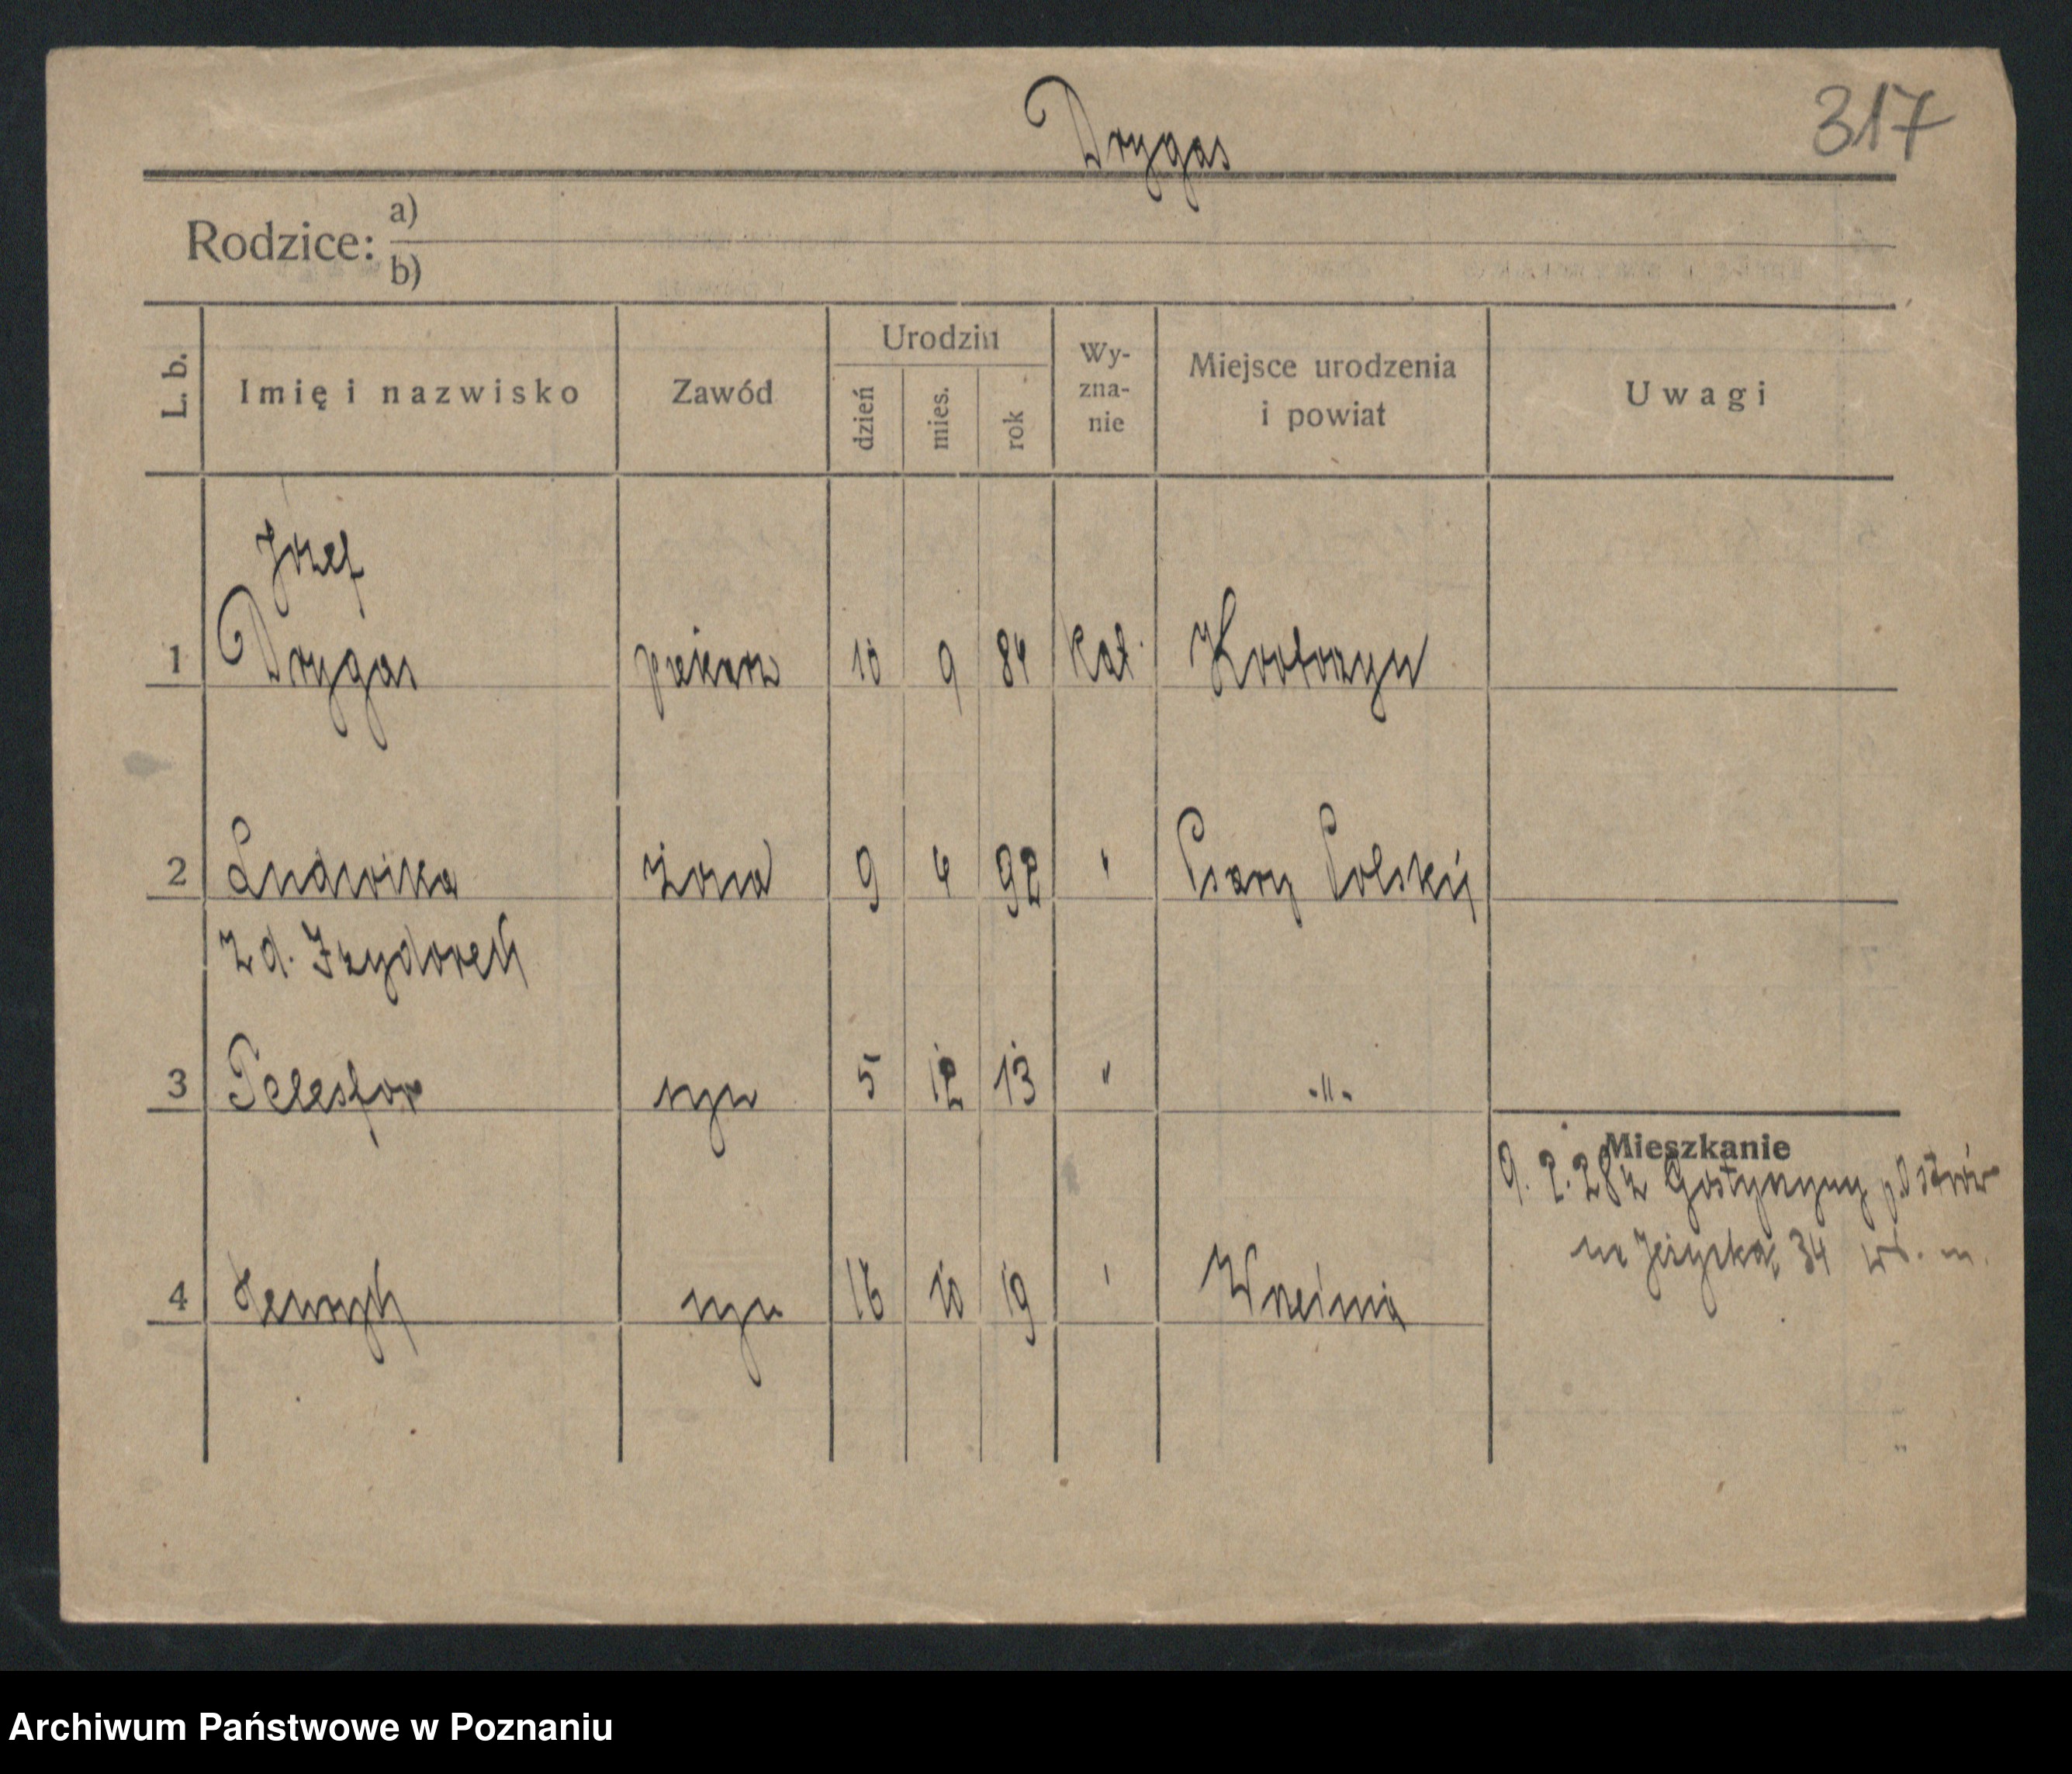 317
Drygas
Rodzice: a)
b)
L. b. Imię i nazwisko Zawód Urodzin dzień mies. rok Wy-zna-nie Miejsce urodzenia i powiat Uwagi
Józef
1 Drygas piekarz 10 9 84 Kat. Krotoszyn
2 Ludwika żona 9 4 92 " Psary Polskie
z d. Izydorek
3 Telesfor syn 5 12 13 " -"-
Mieszkanie
9. 2. 28 z Gostyczyny p. Ostrów
na Jeżycka 34
4 Henryk syn 16 10 19 ' Września
Archiwum Państwowe w Poznaniu